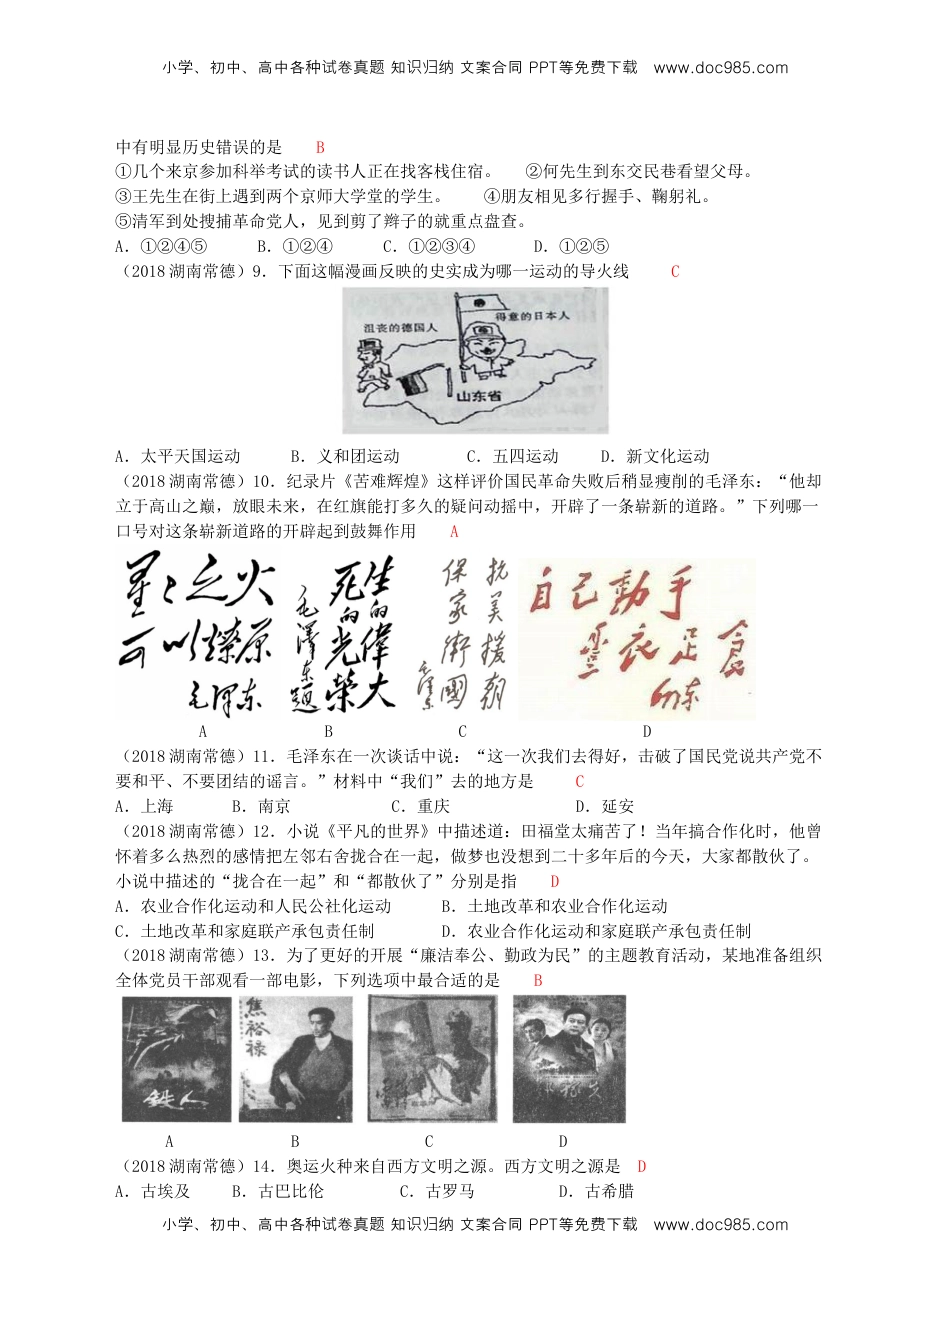 小学、初中、高中各种试卷真题 知识归纳 文案合同 PPT等免费下载 www.doc985.com
中有明显历史错误的是 B
①几个来京参加科举考试的读书人正在找客栈住宿。 ②何先生到东交民巷看望父母。
③王先生在街上遇到两个京师大学堂的学生。 ④朋友相见多行握手、鞠躬礼。
⑤清军到处搜捕革命党人，见到剪了辫子的就重点盘查。
A．①②④⑤ B．①②④ C．①②③④ D．①②⑤
（2018 湖南常德）9．下面这幅漫画反映的史实成为哪一运动的导火线 C
得意的日本人
沮丧的德国人
山东省
A．太平天国运动 B．义和团运动 C．五四运动 D．新文化运动
（2018 湖南常德）10．纪录片《苦难辉煌》这样评价国民革命失败后稍显瘦削的毛泽东：“他却
立于高山之巅，放眼未来，在红旗能打多久的疑问动摇中，开辟了一条崭新的道路。”下列哪一
口号对这条崭新道路的开辟起到鼓舞作用 A
星星之火
可以燎原
毛泽东
生的偉大
死的光榮
毛澤東題
抗美援朝
保家衛國
毛澤東
自己動手
豐衣足食
毛泽东
A B C D
（2018 湖南常德）11．毛泽东在一次谈话中说：“这一次我们去得好，击破了国民党说共产党不
要和平、不要团结的谣言。”材料中“我们”去的地方是 C
A．上海 B．南京 C．重庆 D．延安
（2018 湖南常德）12．小说《平凡的世界》中描述道：田福堂太痛苦了！当年搞合作化时，他曾
怀着多么热烈的感情把左邻右舍拢合在一起，做梦也没想到二十多年后的今天，大家都散伙了。
小说中描述的“拢合在一起”和“都散伙了”分别是指 D
A．农业合作化运动和人民公社化运动 B．土地改革和农业合作化运动
C．土地改革和家庭联产承包责任制 D．农业合作化运动和家庭联产承包责任制
（2018 湖南常德）13．为了更好的开展“廉洁奉公、勤政为民”的主题教育活动，某地准备组织
全体党员干部观看一部电影，下列选项中最合适的是 B
鉄人
焦裕禄
A B C D
（2018 湖南常德）14．奥运火种来自西方文明之源。西方文明之源是 D
A．古埃及 B．古巴比伦 C．古罗马 D．古希腊
小学、初中、高中各种试卷真题 知识归纳 文案合同 PPT等免费下载 www.doc985.com